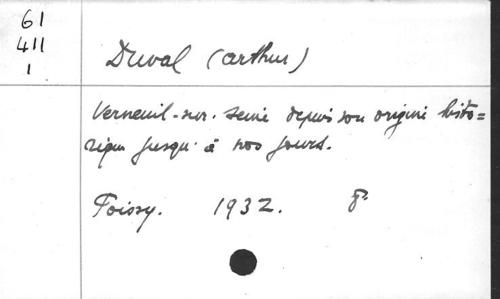 61
411
1
Duval (Arthur)
Verneuil-sur-Seine depuis son origine histo=
rique jusqu'à nos jours.
Poissy. 1932. 8°